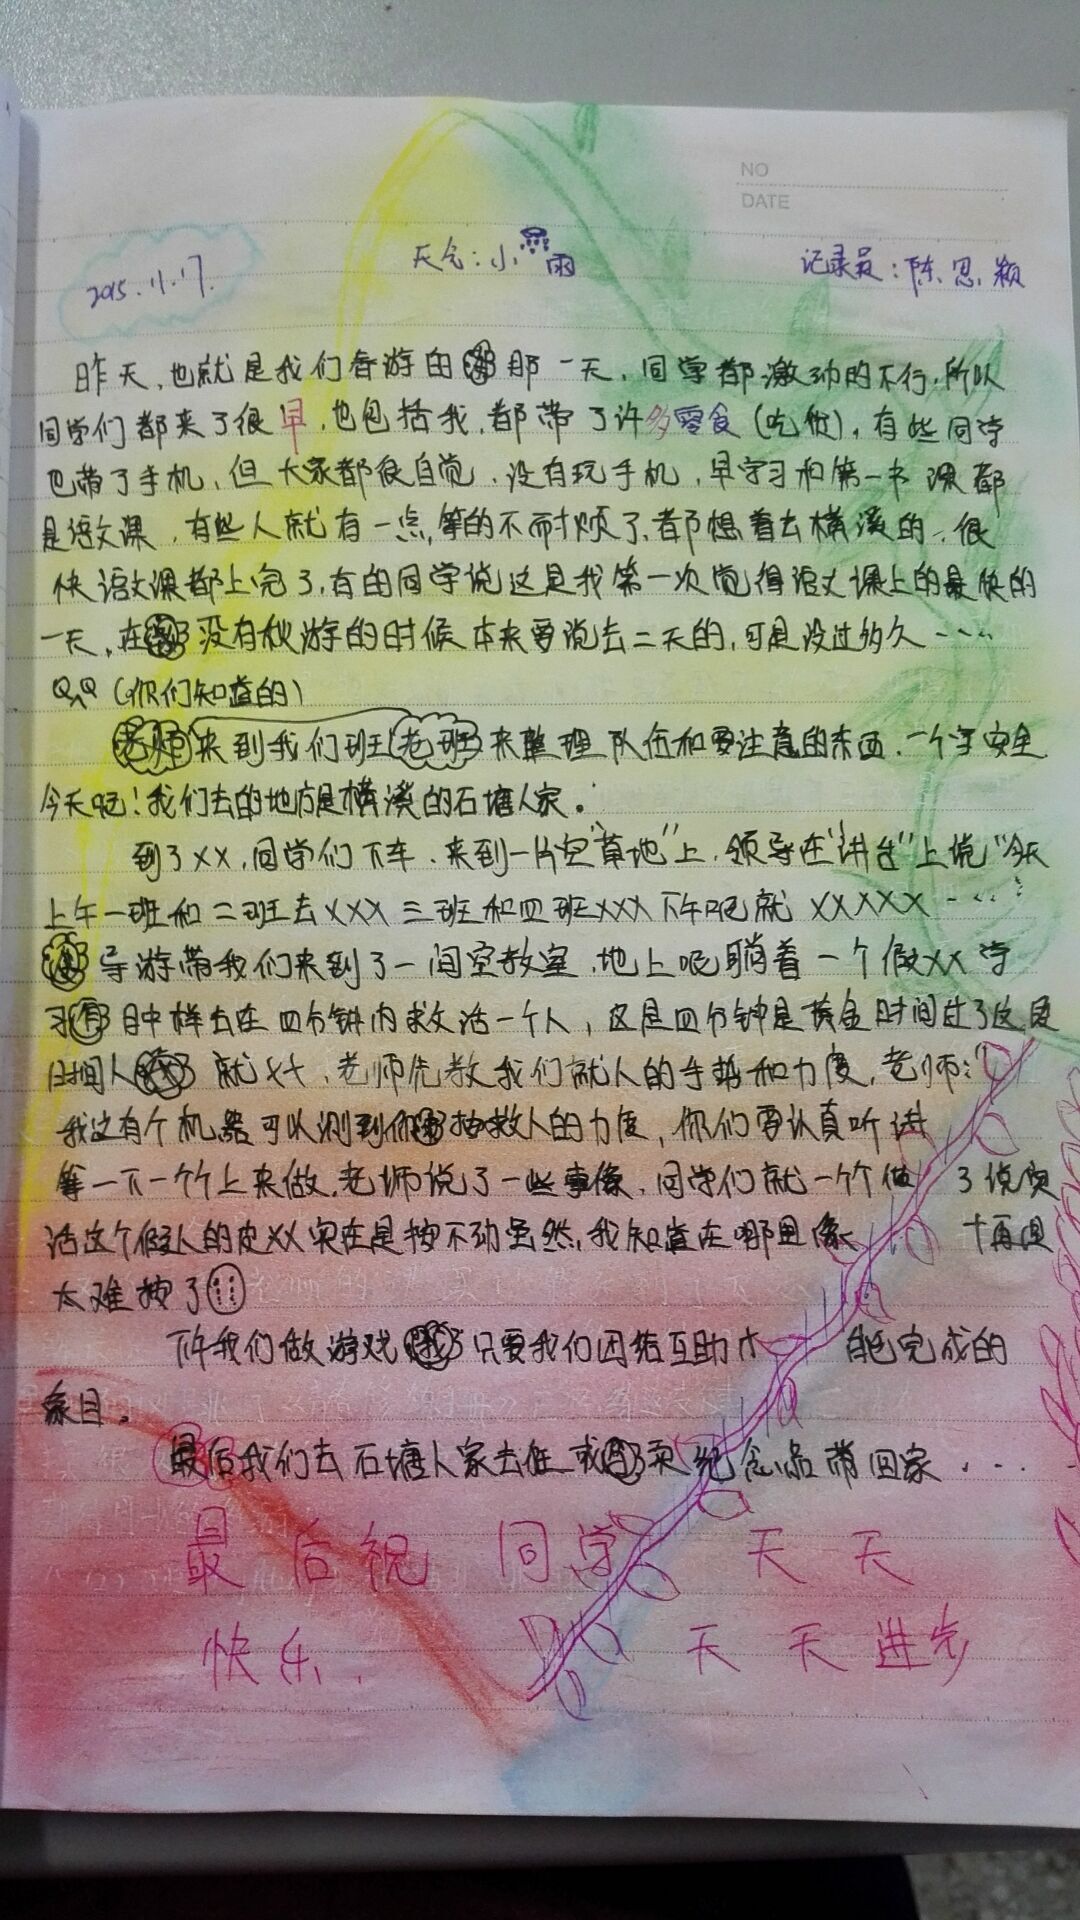 NO
DATE
2015.11.17.
天气：小雨
记录员：陈思颖
昨天，也就是我们春游的那一天，同学都激动的不行，所以
同学们都来了很早，也包括我，都带了许多零食（吃货），有些同学
也带了手机，但大家都很自觉，没有玩手机，早学习和第一书课都
是语文课，有些人就有一点，等的不耐烦了，都想着去横溪的，很
快语文课都上完了，有的同学说这是我第一次觉得语文课上的最快的
一天，在没有秋游的时候本来要说去二天的，可是没过多久……
QAQ（你们知道的）
来到我们班老班来整理队伍和要注意的东西，一个字安全
今天呢！我们去的地方是横溪的石塘人家。
到了XX，同学们下车，来到一片空“草地”上，领导在“讲台”上说“今天
上午一班和二班去XXX三班和四班XXX下午呢就XXXXX……”
导游带我们来到了一间空教室，地上呢躺着一个假XX学
习目中样去在四分钟内求活一个人，这是四分钟是黄金时间过了这段
时间人就XX，老师先教我们就人的手势和力度，老师：“
我这有个机器可以测到你救人的力度，你们要认真听讲
等一下一个个上来做，老师说了一些事像，同学们就一个个做 了说实
话这个假人的皮XX实在是按不动虽然，我知道在哪里像 十再但
太难按了
下午我们做游戏只要我们团结互助 能完成的
象目。
最后我们去石塘人家去住或买纪念品带回家……
最后祝 同学 天天
快乐， 天天进步